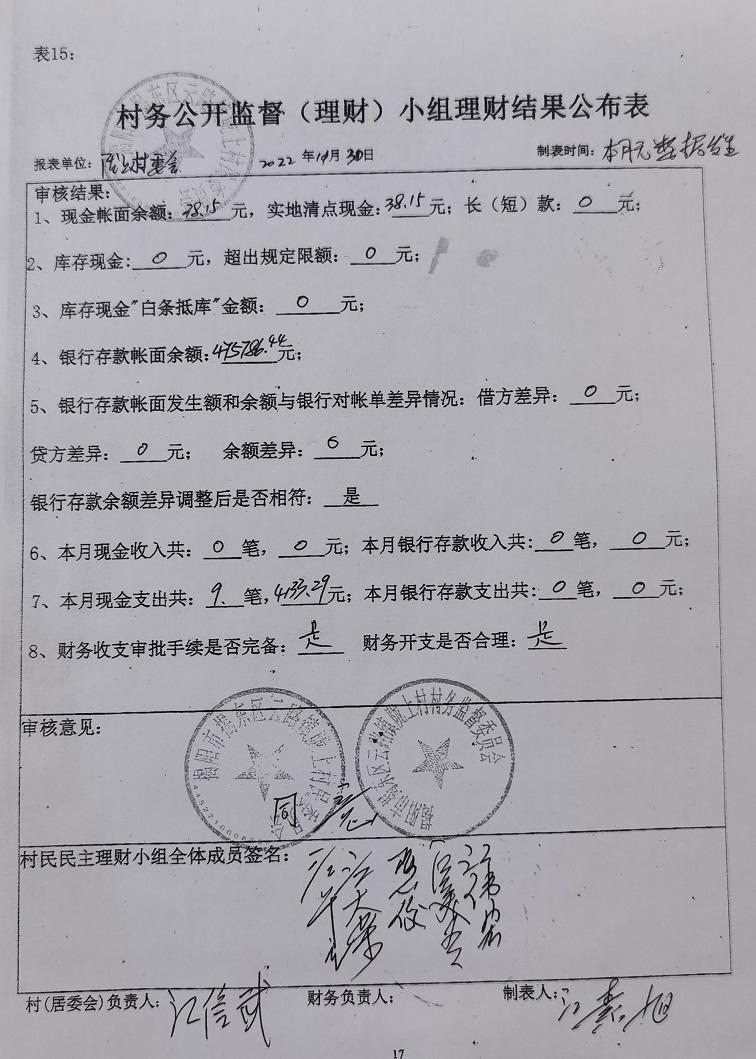 表15：
村务公开监督（理财）小组理财结果公布表
报表单位：院上村委会 2022 年 11 月 30 日 制表时间：
审核结果：
1、现金帐面余额：38.15 元，实地清点现金：38.15 元；长（短）款：0 元；
2、库存现金：0 元，超出规定限额：0 元；
3、库存现金"白条抵库"金额：0 元；
4、银行存款帐面余额：475786.44 元；
5、银行存款帐面发生额和余额与银行对帐单差异情况：借方差异：0 元；
贷方差异：0 元； 余额差异：0 元；
银行存款余额差异调整后是否相符：是
6、本月现金收入共：0 笔，0 元；本月银行存款收入共：0 笔，0 元；
7、本月现金支出共：9 笔，4133.29 元；本月银行存款支出共：0 笔，0 元；
8、财务收支审批手续是否完备：是 财务开支是否合理：是
审核意见：
揭阳市揭东区云路镇院上村民委员会
揭阳市揭东区云路镇院上村村务监督委员会
同意
村民民主理财小组全体成员签名：
村(居委会)负责人：江信武 财务负责人： 制表人：江嘉旭
17